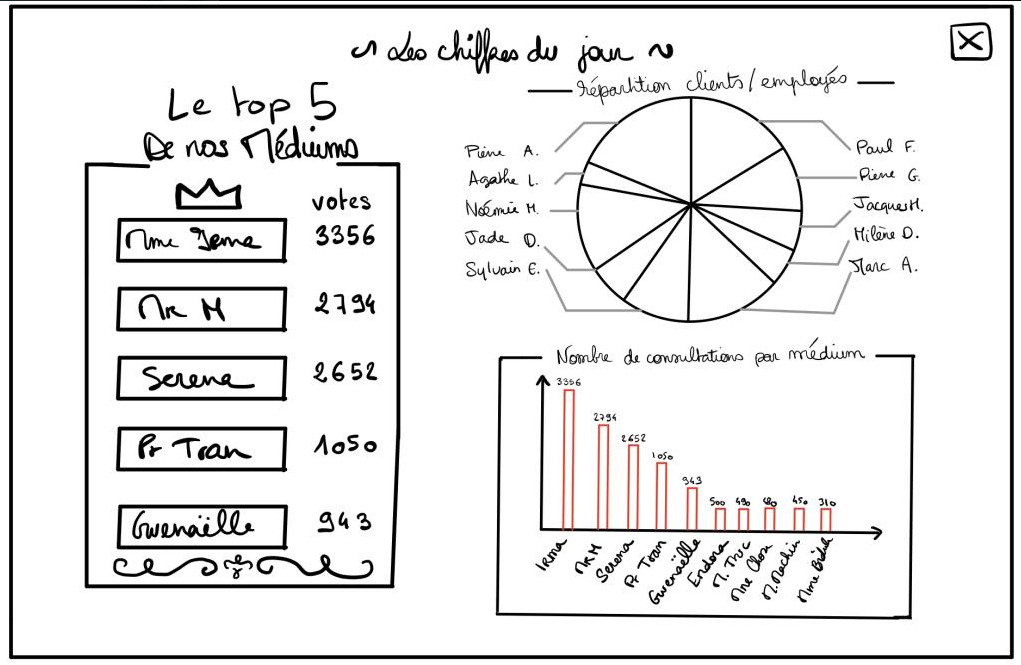 Les chiffres du jour
X
Le top 5
De nos Médiums
votes
Mme Irma 3356
Mr M 2794
Serena 2652
Pr Tran 1050
Gwenaëlle 943
répartition clients/employés
Pierre A.
Agathe L.
Noémie M.
Jade D.
Sylvain E.
Paul F.
Pierre G.
Jacques H.
Milène D.
Marc A.
Nombre de consultations par médium
3356
2794
2652
1050
943
500
490
480
450
310
Irma
Mr M
Serena
Pr Tran
Gwenaëlle
Endora
M. Truc
Mme Chose
M. Machin
Mme Bidule